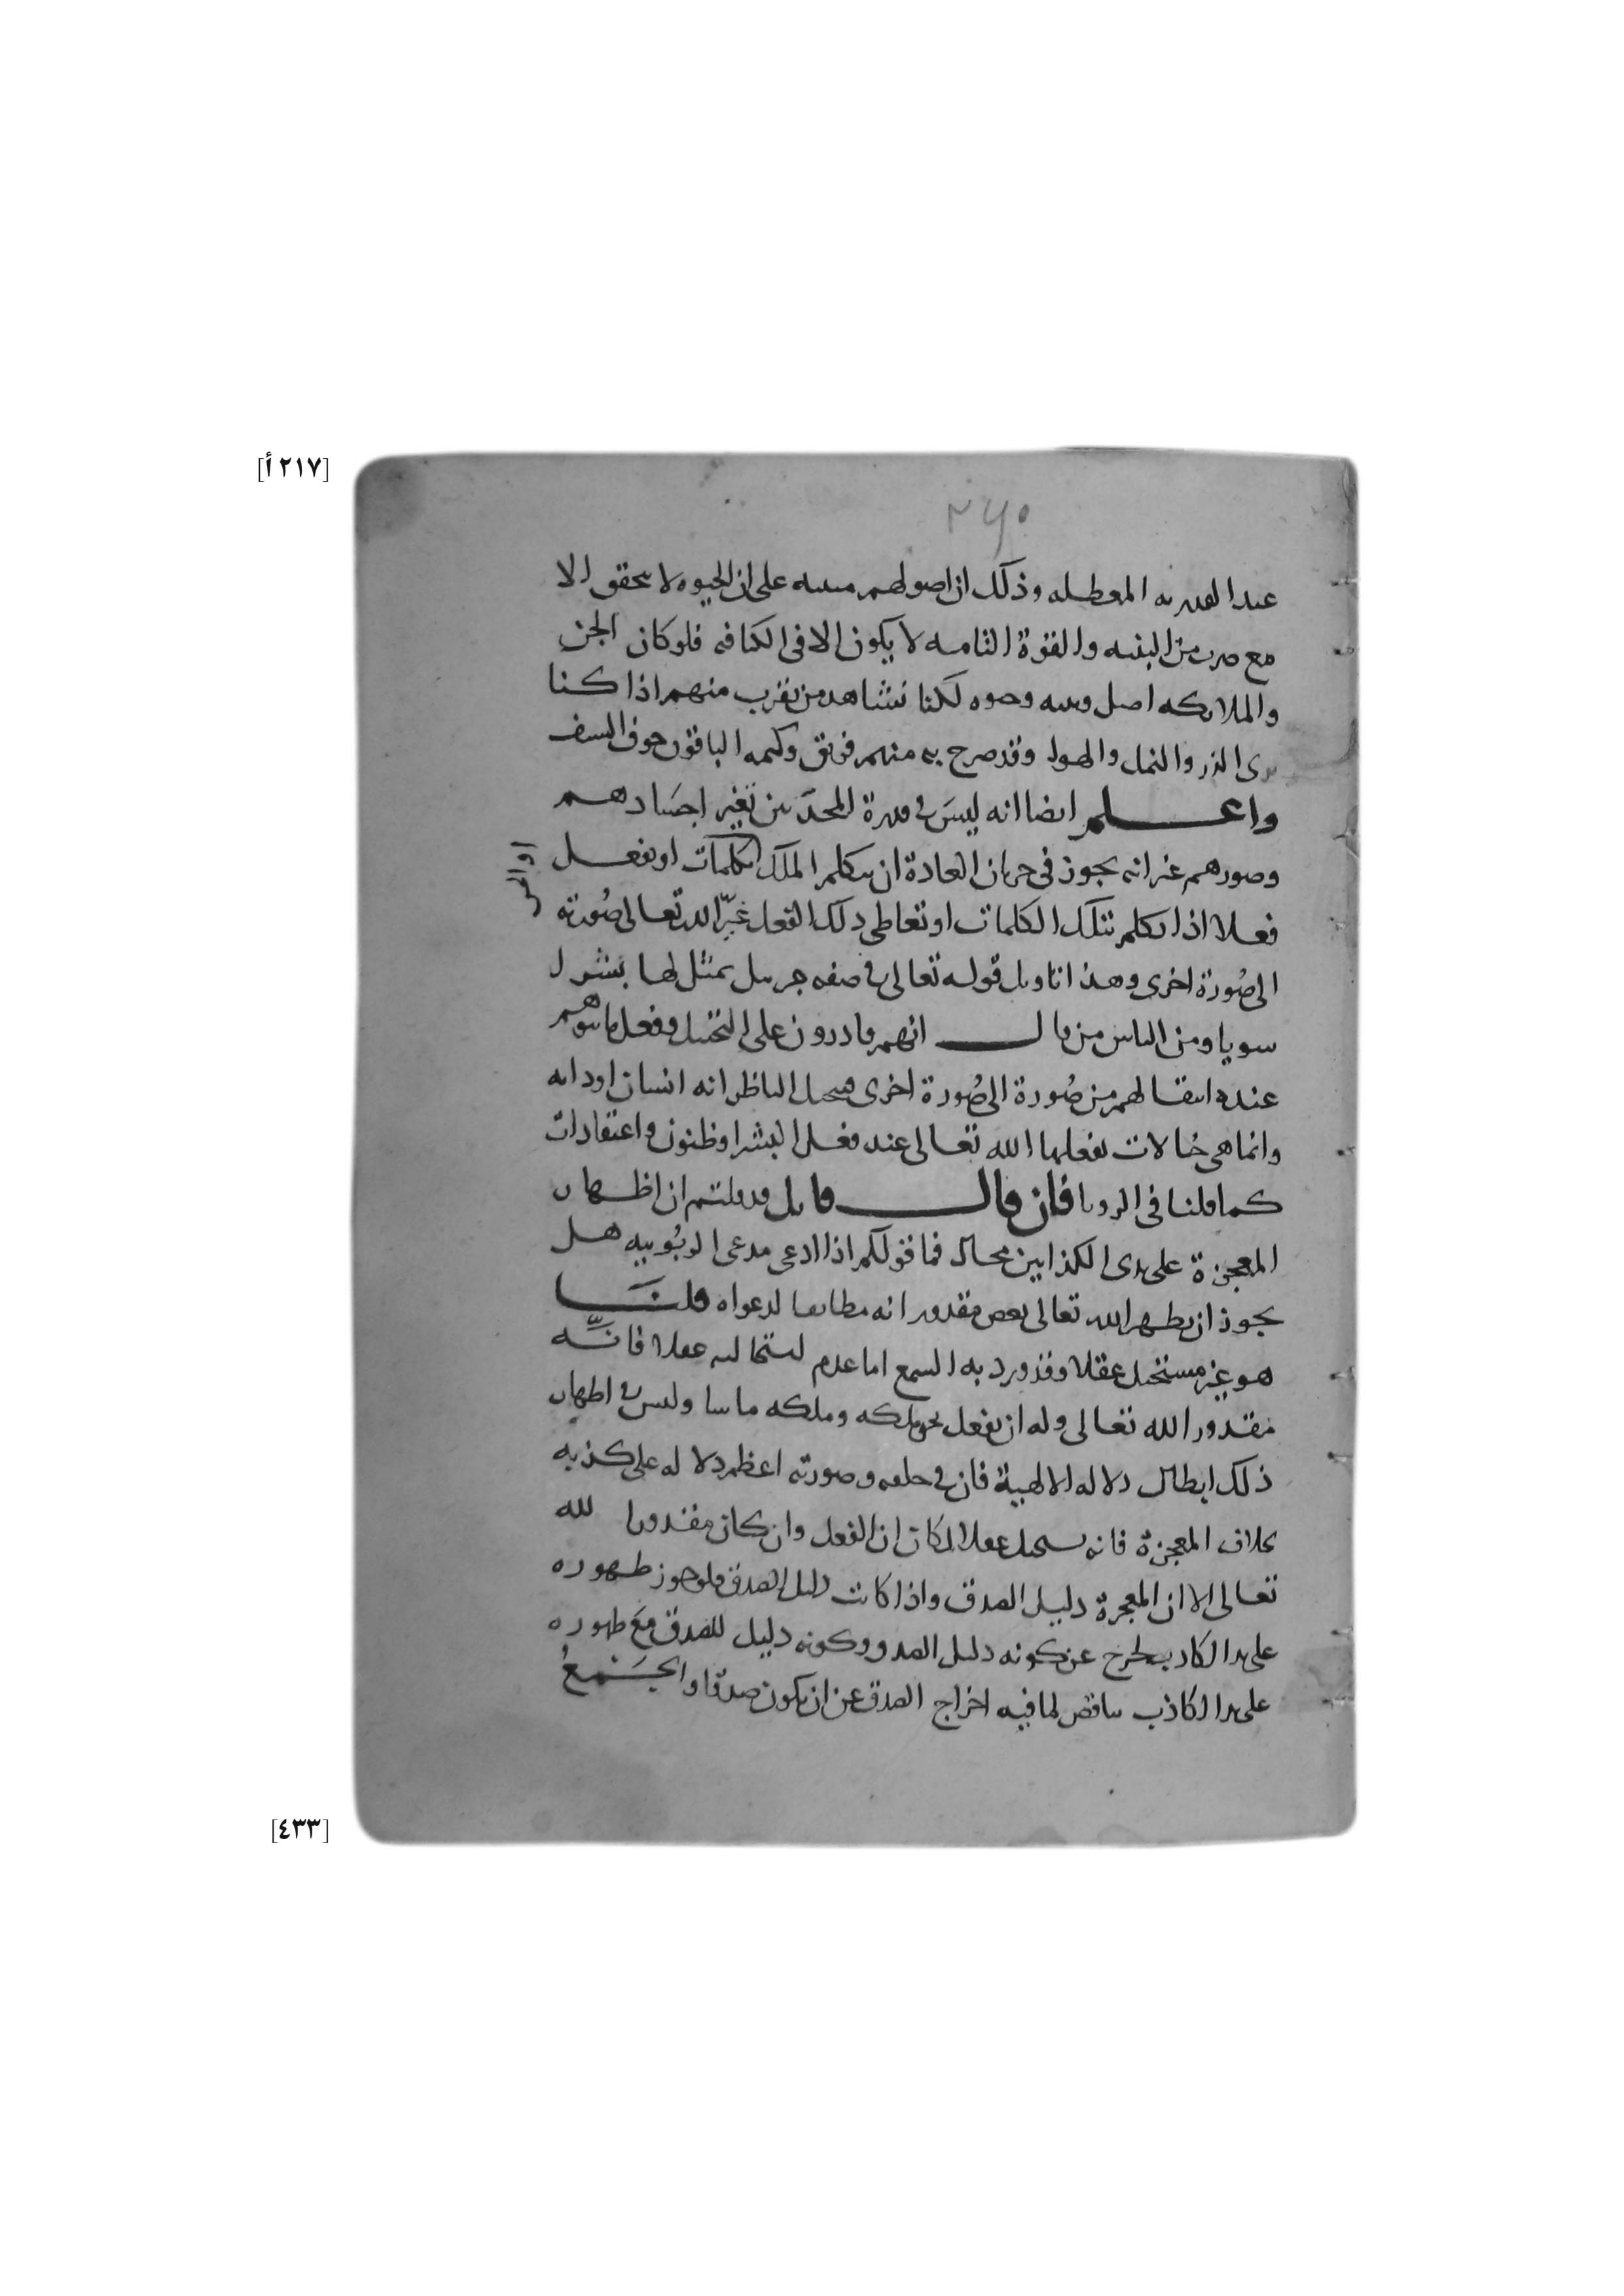 [٢١٧ أ]
٢٤٠
عند القدريه المعطله وذلك ان اصولهم مبنيه على ان الحيوه لا تتحقق الا
مع ضرب من البنيه والقوة التامه لا يكون الا فى الكثافه فلو كان الجن
والملائكه اصل وبنيه لكنا نشاهد من يقرب منهم اذا كنا
نرى الذر والنمل والهوا وقد صرح به منهم فريق وكتمه الباقون خوف السيف
واعلم ايضا انه ليس فى قدرة المحدثين تغيير اجسادهم
وصورهم غير انه يجوز فى جريان العادة ان يتكلم الملك بكلمات او يفعل
او الجن
فعلا اذا تكلم بتلك الكلمات او تعاطى ذلك الفعل غيّر الله تعالى صُورته
الى صُورة اخرى وهذا تاويل قوله تعالى فى صفه جبريل تمثل لها بشرا
سويا ومن الناس من قال انهم قادرون على التخييل وفعل ما يتوهم
عنده انتقالهم من صُورة الى صُورة اخرى فيتخيل الناظر انه انسان او دابه
وانما هى خيالات يفعلها الله تعالى عند فعل البشر او ظنون واعتقادات
كما قلنا فى الرويا فان قال قايل قد قلتم ان اظهار
المعجزة على يدى الكذابين محال فما قولكم اذا ادعى مدعى الربُوبيه هل
يجوز ان يظهر الله تعالى بعض مقدوراته مطابقا لدعواه قلنا
هو غير مستحيل عقلا وقد ورد به السمع اما عدم استحالته عقلا فانّه
مقدور الله تعالى وله ان يفعل بحق ملكه وملكه ما يشا وليس فى اظهار
ذلك ابطال دلاله الالهية فان فى خلقه وصورته اعظم دلاله على كذبه
بخلاف المعجزة فانه يستحيل عقلا لمكان ان الفعل وان كان مقدورا لله
تعالى الا ان المعجزة دليل الصدق واذا كانت دليل الصدق فلو جوز ظهوره
على يد الكاذب لخرج عن كونه دليل الصدق وكونه دليل للصدق مع ظهوره
على يد الكاذب تناقض لما فيه اخراج الصدق عن ان يكون صدقا والجَمعُ
[٤٣٣]